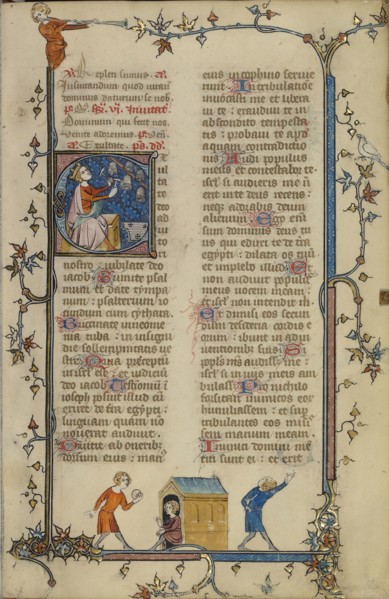 Repleti sumus. a.
Iusiurandum quod iurau
dominus daturum se nob.
vi. Inuitat
Dominum qui fecit nos
venite adoremus. ps. ven.
a. Exultate. ps. dd.
E
ul
ta
te
deo
ad
iu
to
ri
nostro iubilate deo
iacob Sumite psal
mum et date tympa
num : psalterium io
cundum cum cythara.
Buccinate in neome
nia tuba : in insigni
die sollempnitatis ve
stre. Quia preceptu
isrl est : et iudiciu
deo iacob Testimoniu i
ioseph posuit illud cu
exiret de tra egypti :
linguam quam no
nouerat audiuit.
Diuertit ab onerib
dorsum eius : man
eius in cophino seruie
runt. In tribulatioe
inuocasti me et libera
ui te : exaudiui te in
abscondito tempesta
tis : probaui te apd
aquam contradictio
nis Audi populus
meus et contestabor te :
isrl si audieris me n
erit in te deus recens :
neqz adorabis deum
alienum. Ego eni
sum dominus deus tu
us qui eduxi te de tra
egypti : dilata os tuu
et implebo illud. Et
non audiuit populus
meus vocem meam :
et isrl non intendit m.
Et dimisi eos secun
dum desideria cordis e
orum : ibunt in adin
uentionibus suis Si
popls ms audisset me :
isrl si in vijs meis am
bulasset Pro nichilo
forsitan inimicos eor
humiliassem : et sup
tribulantes eos misis
sem manum meam.
Inimici domini me
titi sunt ei : et erit